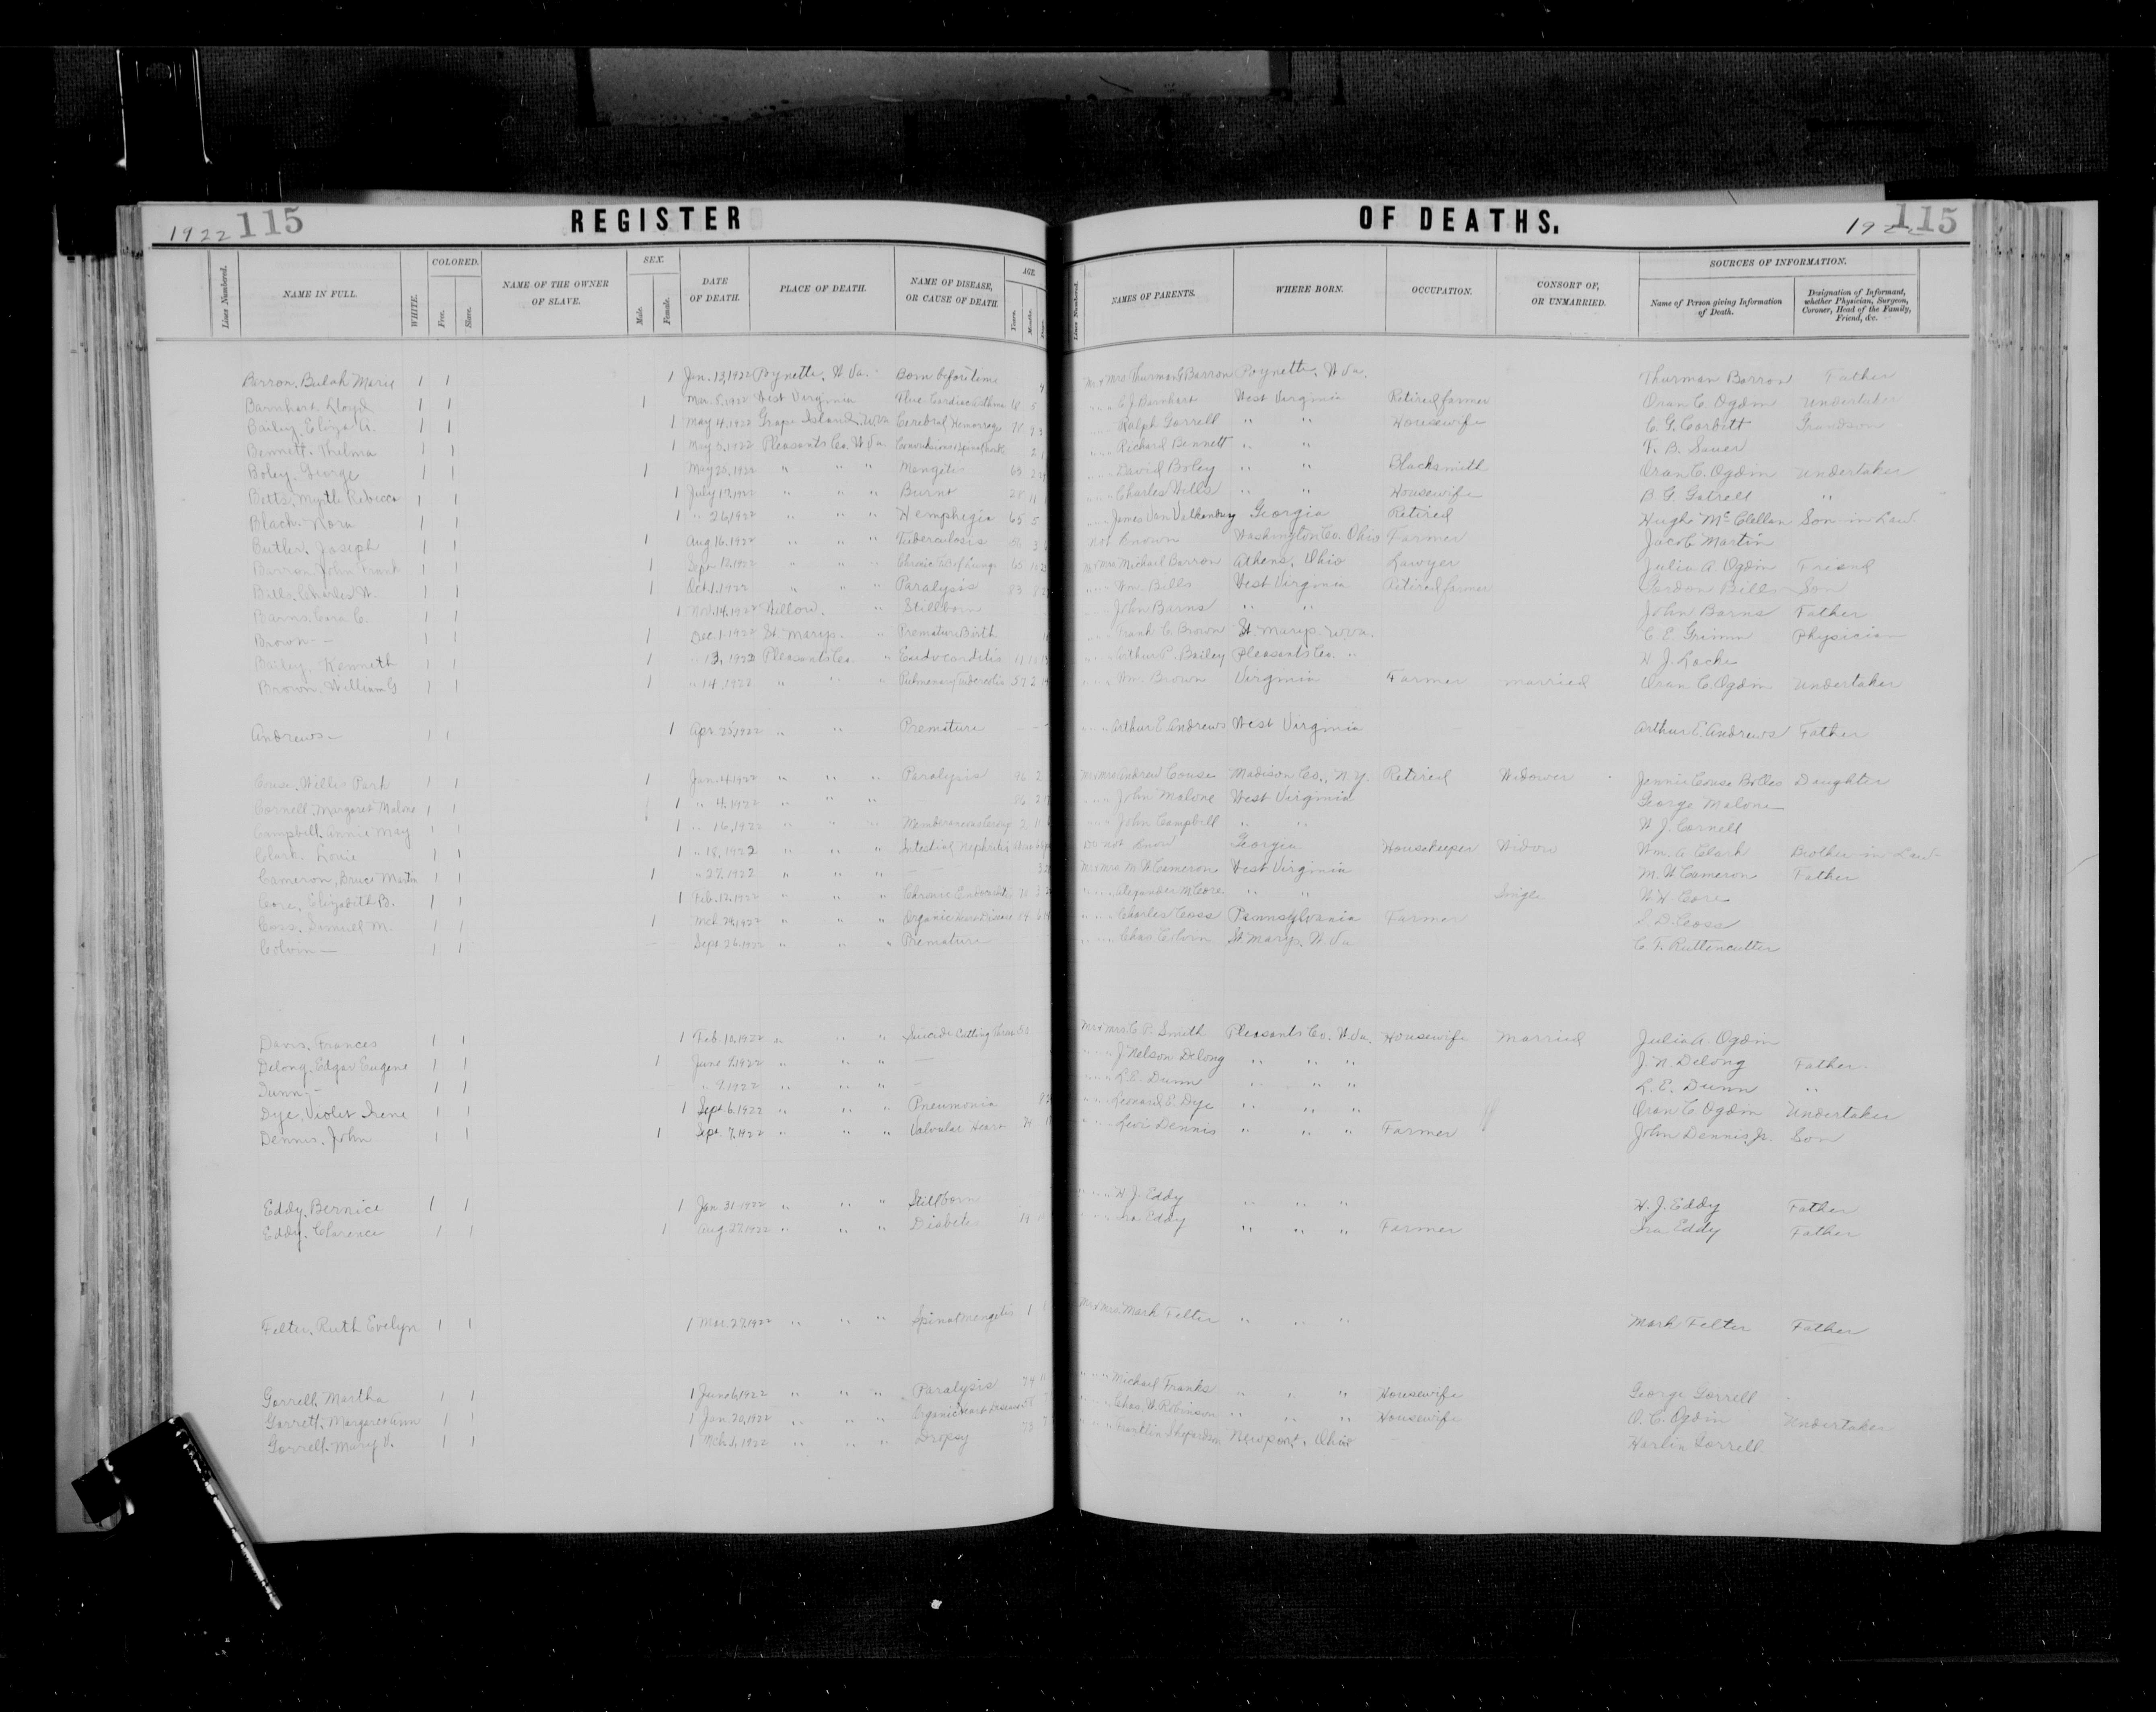 1922 115 REGISTER OF DEATHS. 19 115
Lines Numbered. NAME IN FULL. WHITE. COLORED. Free. Slave. NAME OF THE OWNER OF SLAVE. SEX. Male. Female. DATE OF DEATH. PLACE OF DEATH. NAME OF DISEASE, OR CAUSE OF DEATH. AGE. Years. Months. Days. Lines Numbered. NAMES OF PARENTS. WHERE BORN. OCCUPATION. CONSORT OF, OR UNMARRIED. SOURCES OF INFORMATION. Name of Person giving Information of Death. Designation of Informant, whether Physician, Surgeon, Coroner, Head of the Family, Friend, &c.
Barron, Bulah Marie 1 1 1 Jan. 13, 1922 Poynette, W Va. Born before time Mr & Mrs Thurman Barron Poynette, W Va. Thurman Barron Father
Barnhart, Lloyd 1 1 1 Mar. 8, 1922 West Virginia " " " C J Barnhart West Virginia Retired farmer Oran C. Ogdin Undertaker
Bailey, Eliza A. 1 1 1 May 4, 1922 Grape Island, W Va Cerebral Hemorrage Ralph Gorrell " " Housewife C. G. Corbitt Grandson
Bennett, Thelma 1 1 1 May 5, 1922 Pleasants Co. W Va. Richard Bennett " " F. B. Sauer
Boley, George 1 1 1 May 25, 1922 " " " Mengites 69 David Boley " " Blacksmith Oran C. Ogdin Undertaker
Betts, Myrtle Rebecca 1 1 1 July 17, 1922 " " " Burnt 28 11 Charles Wells " " Housewife B G Gatrell "
Black, Nora 1 1 1 " 26, 1922 " " " Hemphegia 65 5 James Van Valkenburg Georgia Retired Hugh McClellan Son-in-Law
Butler, Joseph 1 1 1 Aug 16, 1922 " " " Tuberculosis Not Known Washington Co. Ohio Farmer Jacob Martin
Barron, John Frank 1 1 1 Sept 12, 1922 " " " 65 Mr & Mrs Michael Barron Athens, Ohio Lawyer Julia A. Ogdin Friend
Bills, Charles W. 1 1 1 Oct. 1, 1922 " " " Paralysis 83 8 Wm. Bills West Virginia Retired farmer Gordon Bills Son
Barns, Cora C. 1 1 1 Nov. 14, 1922 Willow. " Stillborn John Barns " " John Barns Father
Brown — 1 1 1 Dec. 1, 1922 St Marys. " Premature Birth Frank C. Brown St. Marys W Va. C E. Grimm Physician
Bailey, Kenneth 1 1 1 " 13, 1922 Pleasants Co. " Endocarditis 11 Arthur P. Bailey Pleasants Co. " W J. Locke
Brown, William G 1 1 1 " 14, 1922 " " " Pulmonary Tuberculis 57 2 Wm. Brown Virginia Farmer Married Oran C. Ogdin Undertaker
Andrews — 1 1 1 Apr. 25, 1922 " " Premature — — Arthur E Andrews West Virginia — — Arthur E. Andrews Father
Couse, Willis Park 1 1 1 Jan. 4, 1922 " " " Paralysis 96 2 Mr & Mrs Andrew Couse Madison Co., N. Y. Retired Widower Jennie Couse Bolles Daughter
Cornell, Margaret Malone 1 1 1 " 4, 1922 " " " — John Malone West Virginia George Malone
Campbell, Annie May 1 1 1 " 16, 1922 " " " Membraneous Croup 2 11 John Campbell " " W J. Cornell
Clark, Louie 1 1 1 " 18, 1922 " " " Intestial Nephritis Do not Know Georgia Housekeeper Widow Wm. A Clark Brother-in-Law
Cameron, Bruce Martin 1 1 1 " 27, 1922 " " " — Mr & Mrs M W Cameron West Virginia M. W Cameron Father
Core, Elizabeth B. 1 1 1 Feb. 12, 1922 " " " Alexander M Core " " Single W H Core
Coss, Samuel M. 1 1 1 Mch. 29, 1922 " " " Organic Heart Disease Charles Coss Pennsylvania Farmer S. D. Coss
Colvin — 1 1 — Sept 26, 1922 " " " Premature Chas. Colvin St. Marys, W Va C. F. Ruttencutter
Davis, Frances 1 1 1 Feb. 10, 1922 " " " Suicide Cutting Throat Mr & Mrs C. P. Smith Pleasants Co. W Va. Housewife Married Julia A. Ogdin
Delong, Edgar Eugene 1 1 1 June 7, 1922 " " " — J Nelson Delong " " " J. N. Delong Father
Dunn — 1 1 " 9, 1922 " " " — L. E. Dunn " " " L. E. Dunn "
Dye, Violet Irene 1 1 1 Sept. 6, 1922 " " " Pneumonia Leonard E. Dye " " " Oran C Ogdin Undertaker
Dennis, John 1 1 1 Sept. 7, 1922 " " " Valvular Heart 74 Levi Dennis " " " Farmer John Dennis Jr. Son
Eddy, Bernice 1 1 1 Jan. 31, 1922 " " " Stillborn W. J. Eddy " " " W. J. Eddy Father
Eddy, Clarence 1 1 1 Aug. 27, 1922 " " " Diabetes 19 Ira Eddy " " " Farmer Ira Eddy Father
Felter, Ruth Evelyn 1 1 1 Mar. 27, 1922 " " " Spinal mengetis 1 Mr & Mrs Mark Felter " " " Mark Felter Father
Gorrell, Martha 1 1 1 June 6, 1922 " " " Paralysis 74 Michael Franks " " " Housewife George Gorrell
Garrett, Margaret Ann 1 1 1 Jan. 20, 1922 " " " Organic Heart Disease Chas. W Robinson " " " Housewife O. C. Ogdin Undertaker
Gorrell, Mary V. 1 1 1 Mch. 1, 1922 " " " Dropsy 73 Franklin Shepardson Newport, Ohio Harlin Gorrell